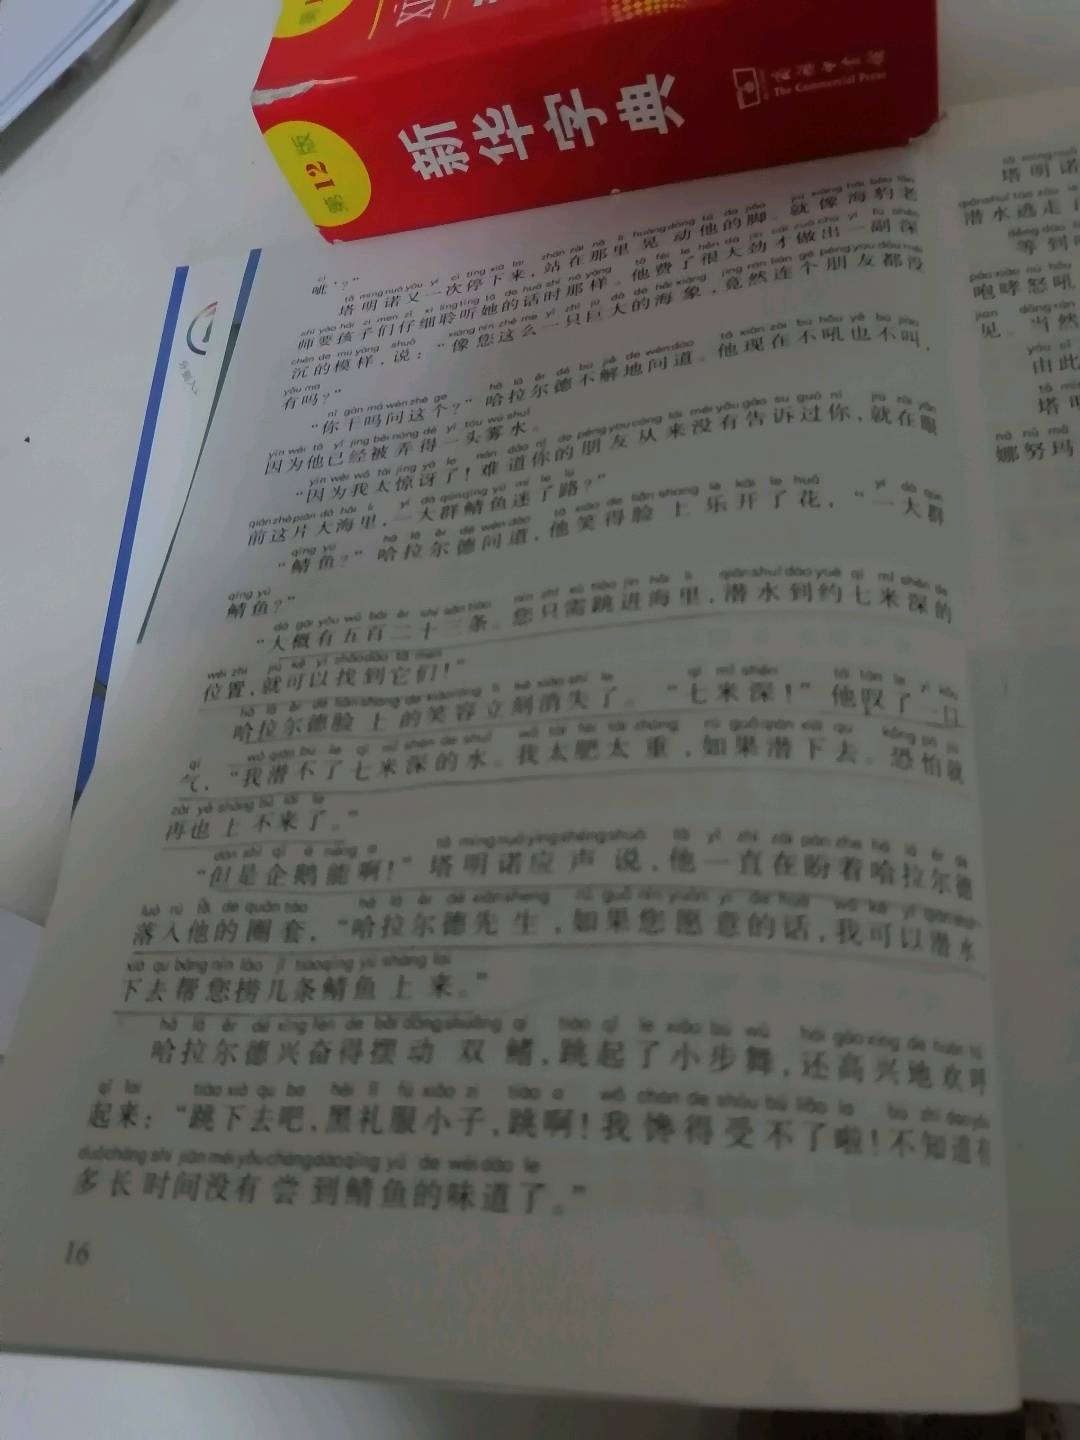 第12版
新华字典
商务印书馆
The Commercial Press
呲'？"
塔明诺又一次停下来，站在那里晃动他的脚。就像海豹老
师要孩子们仔细聆听她的话时那样。他费了很大劲才做出一副深
沉的模样，说："像您这么一只巨大的海象，竟然连个朋友都没
有吗？"
"你干吗问这个？"哈拉尔德不解地问道。他现在不吼也不叫，
因为他已经被弄得一头雾水。
"因为我太惊讶了！难道你的朋友从来没有告诉过你，就在眼
前这片大海里，一大群鲭鱼迷了路？"
"鲭鱼？"哈拉尔德问道，他笑得脸上乐开了花，"一大群
鲭鱼？"
"大概有五百二十三条。您只需跳进海里，潜水到约七米深的
位置，就可以找到它们！"
哈拉尔德脸上的笑容立刻消失了。"七米深！"他叹了一口
气，"我潜不了七米深的水。我太肥太重，如果潜下去。恐怕就
再也上不来了。"
"但是企鹅能啊！"塔明诺应声说，他一直在盼着哈拉尔德
落入他的圈套，"哈拉尔德先生，如果您愿意的话，我可以潜水
下去帮您捞几条鲭鱼上来。"
哈拉尔德兴奋得摆动双鳍，跳起了小步舞，还高兴地欢呼
起来："跳下去吧，黑礼服小子，跳啊！我馋得受不了啦！不知道有
多长时间没有尝到鲭鱼的味道了。"
16
塔明诺
潜水逃走
等到
咆哮怒吼
见。当然
由此
塔明
娜努玛